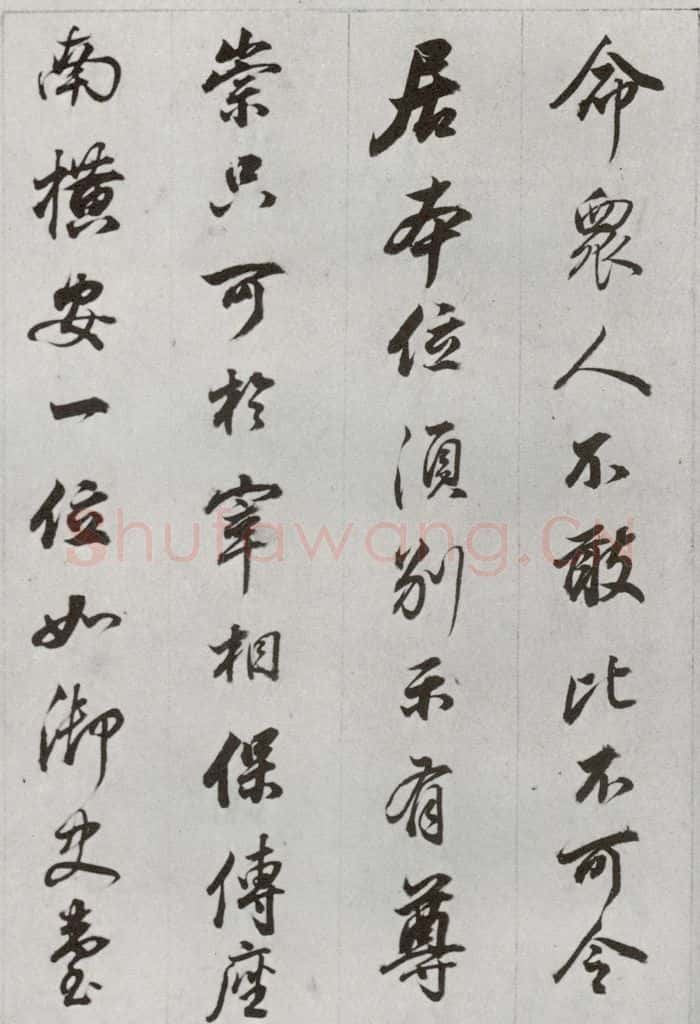 命衆人不敢比不可令
居本位須別示有尊
崇只可於宰相保傅座
南橫安一位如御史臺
shufawang.cn